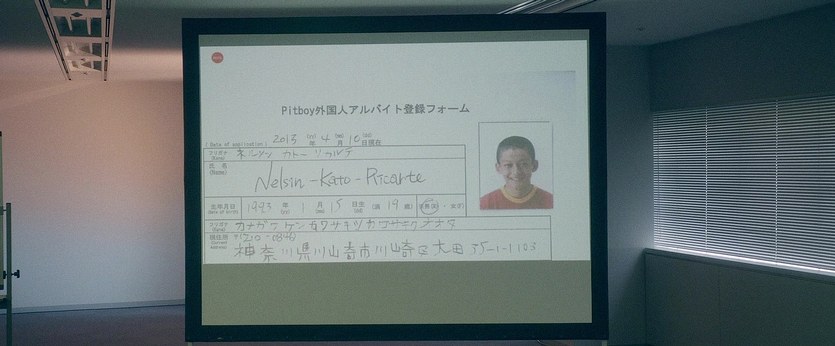 Pitboy外国人アルバイト登録フォーム
( Date of application ) 2013 (yy) 年 4 (mm) 月 10 (dd) 日現在
フリガナ (Kana) ネルソン カトー リカルテ
氏名 (Name) Nelsin-Kato-Ricarte
生年月日 (Date of birth) 1993 年 (yy) 1 月 (mm) 15 日生 (dd) (満 19 歳)
フリガナ (Kana) カナガワケン カワサキシ カワサキク
現住所 (Current Address) 〒210-0846
神奈川県川崎市川崎区大田 75-1-1103